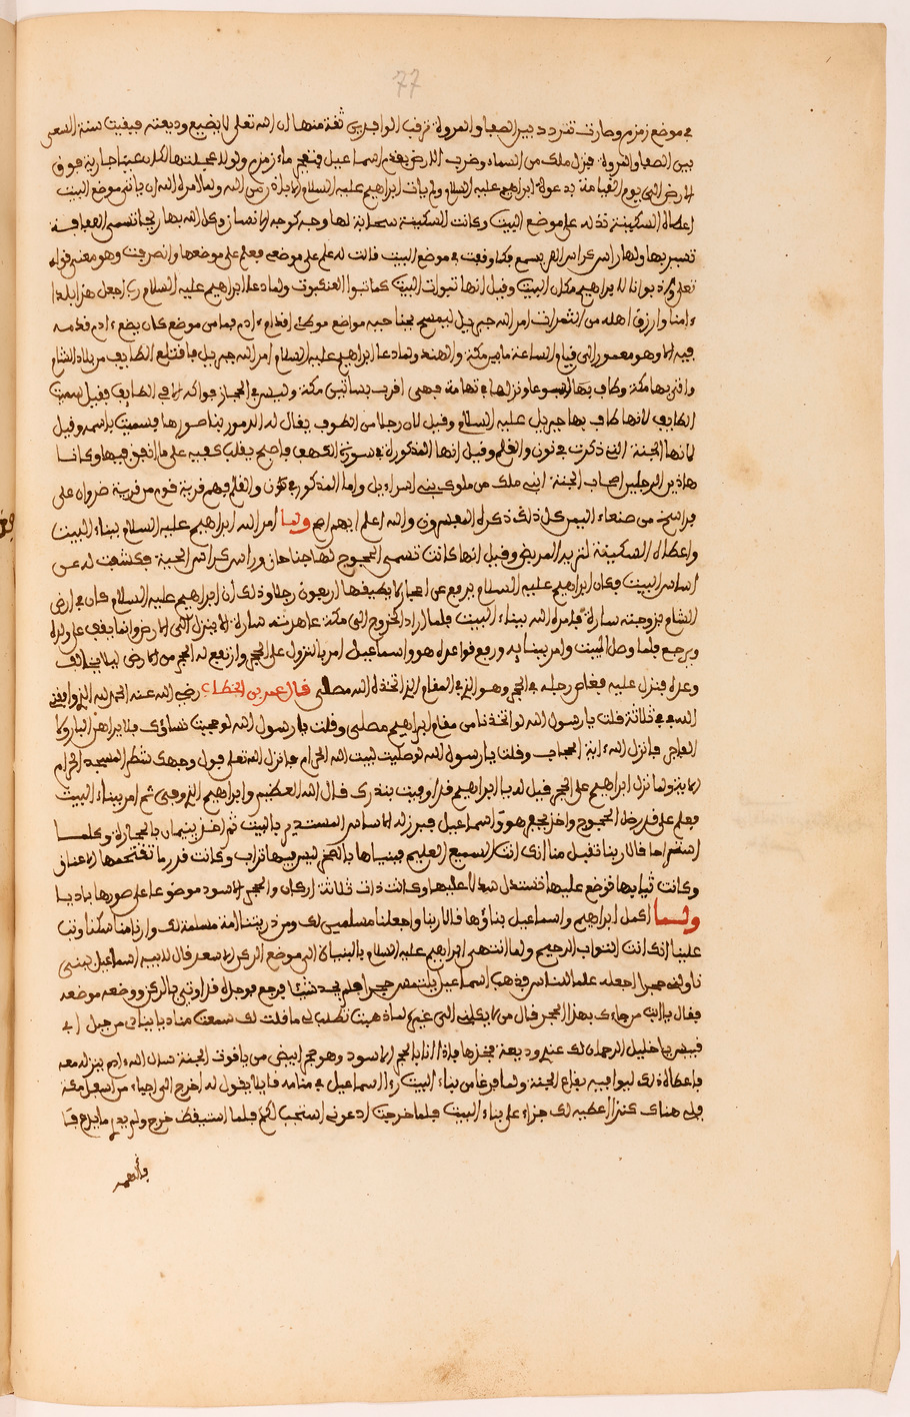 77
في موضع زمزم وصارت تتردد بين الصفا والمروة ترقب الوافدين ثقة منها ان الله تعلى لا يضيع وديعته فبقيت سنة السعي
بين الصفا والمروة فنزل ملك من السماء وضرب الارض بقدم اسماعيل فتفجر ماء زمزم ولولا عجلتها لكان عينا جارية فوق
الارض الى يوم القيامة بدعوة ابراهيم عليه السلام ولم يات ابراهيم عليه السلام الا باذن من الله ولما امره الله ان ياتي موضع البيت
اعطاه السكينة تدله على موضع البيت وكانت السكينة سحابة لها وجه كوجه الانسان وكل الله بها ريحا تسمى
تسير بها ولها راس كراس الهر يسمع فلما وقفت في موضع البيت قالت له علم على موضعي فعلم على موضعها وانصرفت وهو معنى قوله
تعلى واذ بوانا لابراهيم مكان البيت وقيل انها تبوات البيت كما تبوا العنكبوت ولما دعا ابراهيم عليه السلام رب اجعل هذا بلدا
ءامنا وارزق اهله من الثمرات امر الله جبريل ليمسح بجناحيه مواضع موطئ اقدام ءادم فما من موضع كان يضع ءادم قدمه
فيه الا وهو معمور الى قيام الساعة ما بين مكة والهند ولما دعا ابراهيم عليه السلام امر الله جبريل فاقتلع الطايف من بلاد الشام
واتى بها مكة وطاف بها اسبوعا ونزلها في تهامة فهي اقرب بساتين مكة وليس في الحجاز فواكه الا في الطايف فقيل سميت
الطايف لانها طاف بها جبريل عليه السلام وقيل لان رجلا من الطوف يقال له الدمور بنا صورها فسميت باسمه وقيل
لانها الجنة التي ذكرت في نون والقلم وقيل انها المذكورة في سورة الكهف فاصبح يقلب كفيه على ما انفق فيها وكانا
هاذين الرجلين اصحاب الجنة ابني ملك من ملوك بني اسراءيل واما المذكور في نون والقلم فهم قرية قوم من قرية ضروان على
فراسخ من صنعاء اليمن كل ذلك ذكره المفسرون والله اعلم ايهم اصح ولما امر الله ابراهيم عليه السلام ببناء البيت
واعطاه السكينة لتريه المريض وقيل انها كانت تسمى الخجوج لها جناحان وراس كراس الحية فكشفت له عن
اساس البيت فكان ابراهيم عليه السلام يرفع عن احجار لا يطيقها اربعون رجلا وذلك ان ابراهيم عليه السلام كان في ارض
الشام بزوجته سارة فامره الله ببناء البيت فلما اراد الخروج الى مكة عاهدته سارة الا ينزل الى الارض وانما يقف على ولده
ويرجع فلما وصل البيت وامر ببنايه ورفع قواعده هو واسماعيل امر بالنزول على الحجر وارتفع له الحجر من الارض ليلا يخالف
وعده فنزل عليه فغاص رجله في الحجر وهو الذي في المقام الذي اتخذه الله مصلى قال عمر بن الخطاب رضي الله عنه الحمد لله الذي وافقني
الله في ثلاثة قلت يا رسول الله لو اتخذنا من مقام ابراهيم مصلى وقلت يا رسول الله لو حجبت نساؤك فلا يراهن البار ولا
الفاجر فانزل الله ءاية الحجاب وقلت يا رسول الله لو صليت لبيت الله الحرام فانزل الله تعلى فول وجهك شطر المسجد الحرام
الاية ولما نزل ابراهيم على الحجر قيل له يا ابراهيم قد اوفيت بنذرك قال الله العظيم وابراهيم الذي وفى ثم امر ببناء البيت
فعلم على قدر ظل الخجوج واخذ يحفر هو واسماعيل فبرز له الاساس المستدير بالبيت ثم اخذ يبنيان بالحجارة وكلما
استقراما قالا ربنا تقبل منا انك انت السميع العليم فبنياها بالصخر ليس فيها تراب وكانت قدر ما تقتحمها الاعناق
وكانت ثيابها توضع عليها فتسدل سدلا عليها وكانت ذات ثلاثة اركان والحجر الاسود موضوعا على صورها باديا
ولما اكمل ابراهيم واسماعيل بناؤها قالا ربنا واجعلنا مسلمين لك ومن ذريتنا امة مسلمة لك وارنا مناسكنا وتب
علينا انك انت التواب الرحيم ولما انتهى ابراهيم عليه السلام بالبنيان الى موضع الركن الاسعد قال لابنه اسماعيل يا بني
ناولني حجرا اجعله علما للناس فذهب اسماعيل يلتمس حجرا فلم يجد شيئا فرجع فوجده قد اوتي بالركن ووضعه موضعه
فقال يا ابت من جاءك بهذا الحجر قال من لا يكلني الى غيره لما ذهبت تطلب لي ما قلت لك سمعت مناديا يناد من جبل ابي
قبيس يا خليل الرحمان لك عندي وديعة فخذها فاذا انا بالحجر الاسود وهو حجر ابيض من ياقوت الجنة كان ءادم ينزله معه
فاعطاه لك ليوافيه بقاع الجنة ولما فرغا من بناء البيت رءا اسماعيل في منامه قايلا يقول له اخرج الى اجياد من اسفل مكة
فلك هناك كنز اعطيه لك جزاء على بناء البيت فلما خرجت ادعوني استجب لكم فلما استيقظ خرج ولم يعلم ما يدع فيا
فالهمه